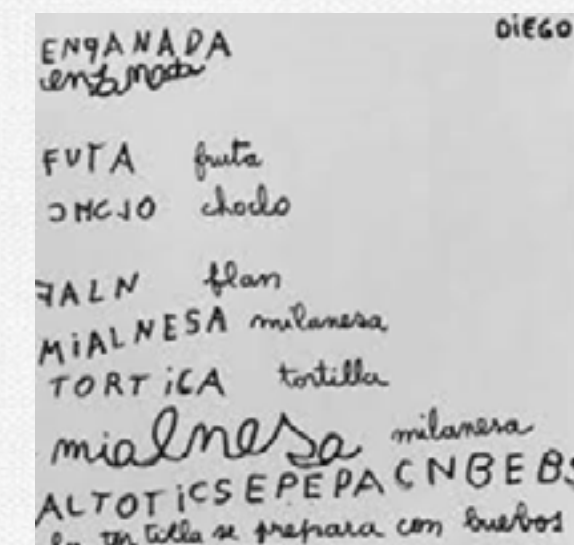 DiEGO
ENqANADA
FUTA fruta
ƆHCJO choclo
FALN flan
MiALNESA milanesa
TORTiCA tortilla
mialnesa milanesa
ALTOTiCSEPEPACNBEBS
la tortilla se prepara con buebos